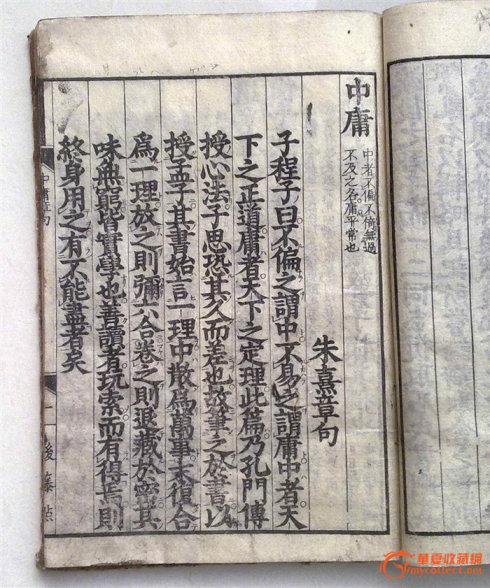 中庸
中者不偏不倚無過
不及之名庸平常也
朱熹章句
子程子曰不偏之謂中不易之謂庸中者天
下之正道庸者天下之定理此篇乃孔門傳
授心法子思恐其久而差也故筆之於書以
授孟子其書始言一理中散爲萬事末復合
爲一理放之則彌六合卷之則退藏於密其
味無窮皆實學也善讀者玩索而有得焉則
終身用之有不能盡者矣
中庸章句
一
後藤點
華夏收藏網
mycollect.net